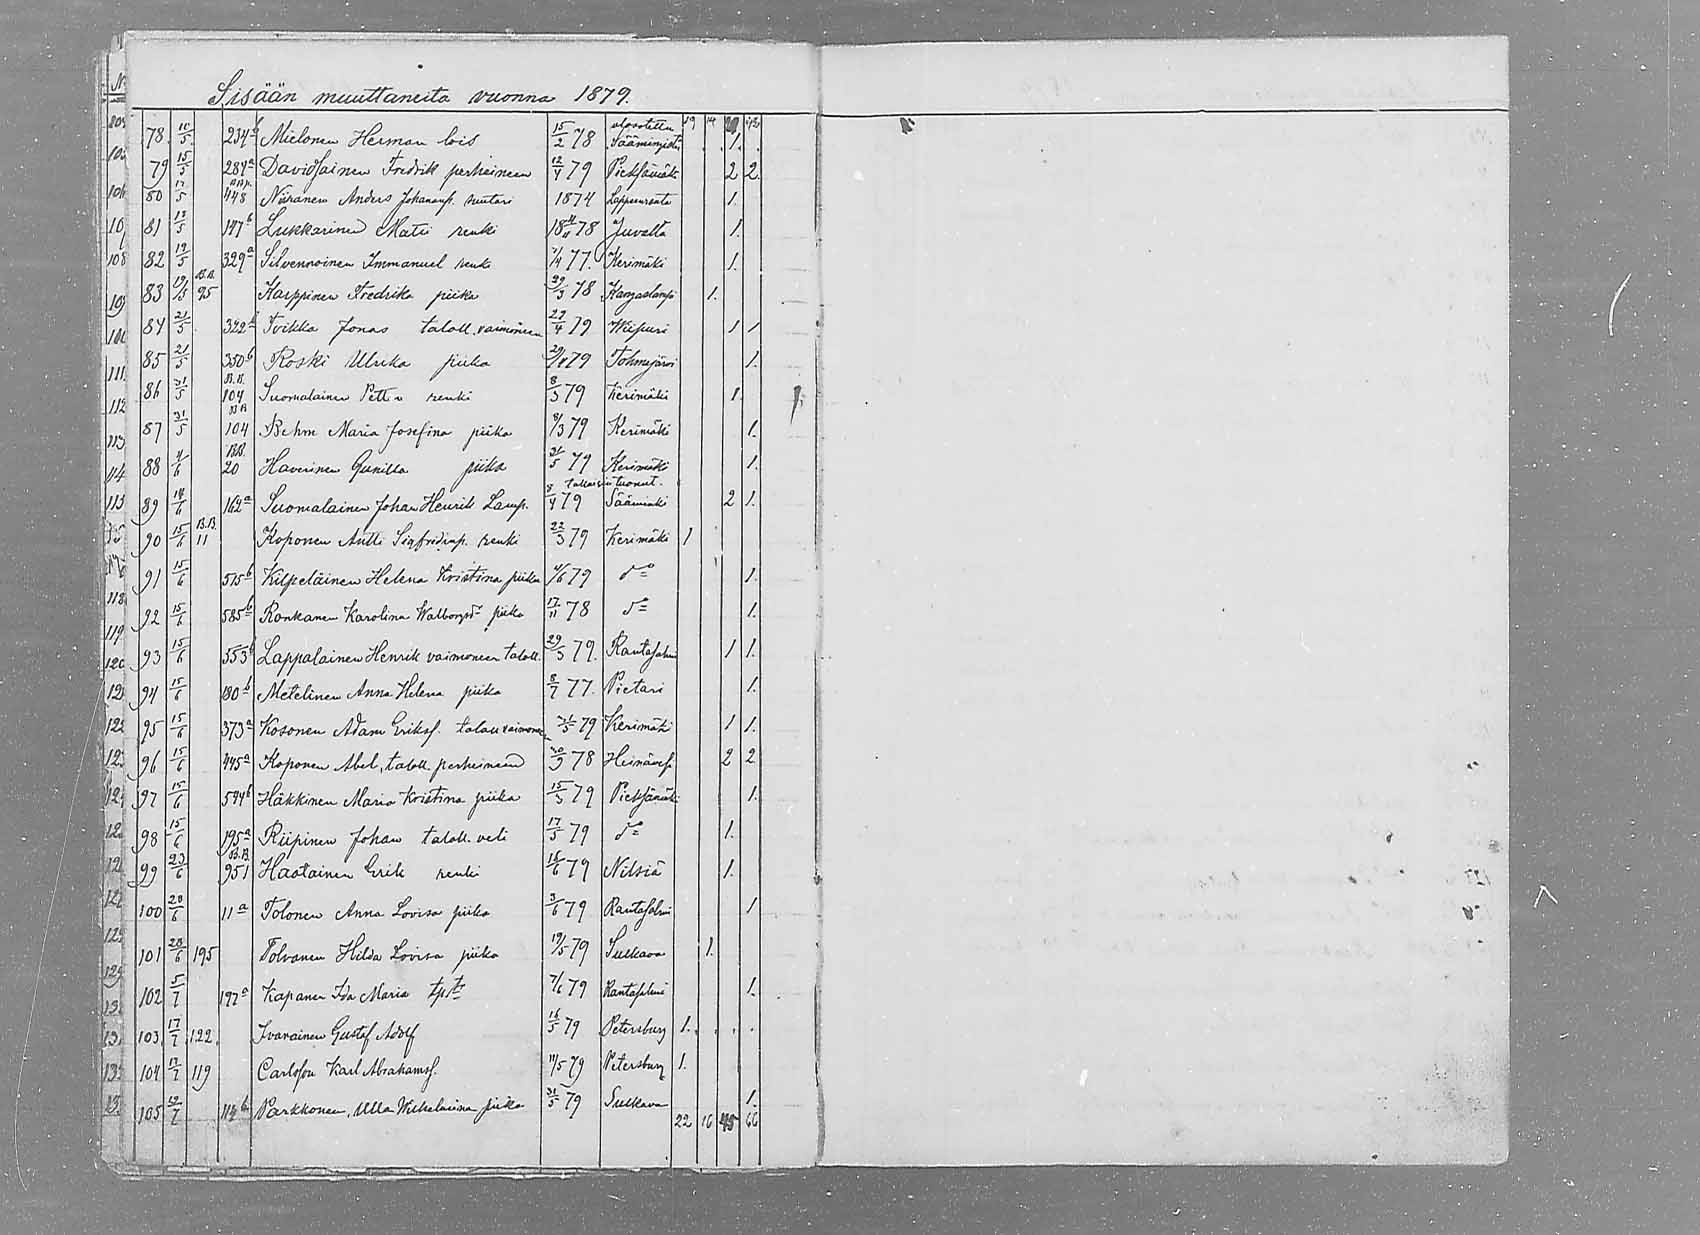 Sisään muuttaneita vuonna 1879.
19 14
78 10/5 234 b Mielonen Herman lois 15/2 78 Sääminjistä 1.
79 15/5 284 a Davidsainen Fredrik perheineen 12/4 79 Pieksämäki 2 2
80 17/5 448 Niiranen Anders Johansp. suutari 1874 Lappeenranta 1.
81 18/5 147 b Lukkarinen Matti renki 78 Juvalta 1.
82 19/5 329 a Silvennoinen Immanuel renki 7/4 77. Kerimäki 1.
83 19/5 B.B. 95 Karppinen Fredrika piika 29/3 78 Kangaslampi 1.
84 21/5 322 b Tvikka Jonas taloll. vaimoneen 22/4 79 Wiipuri 1 1
85 21/5 350 b Koski Ulrika piika 79 Tohmajärvi 1.
86 31/5 B.B. 104 Suomalainen Petter renki 8/3 79 Kerimäki 1.
87 31/5 BB 104 Behm Maria Josefina piika 8/3 79 Kerimäki 1.
88 B.B. 20 Haverinen Gunilla piika 31/5 79 Kerimäki 1.
takaisin tuonut.
89 14/6 162 a Suomalainen Johan Henrik Lamp. 8/4 79 Sääminki 2 1.
90 15/6 B.B. 11 Koponen Antti Sigfridinp. renki 22/3 79 Kerimäki 1
91 15/6 515 b Kilpeläinen Helena Kristina piika 79 do 1.
92 15/6 585 b Ronkanen Karolina Walborg piika 17/11 78 do 1.
93 15/6 553 b Lappalainen Henrik vaimoneen taloll. 29/3 79. Rantasalmi 1 1.
94 15/6 180 b Metelinen Anna Helena piika 8/7 77. Pietari 1.
95 15/6 373 a Kosonen Adam Eriksp. taloll vaimoneen 31/5 79 Kerimäki 1 1.
96 15/6 445 a Koponen Abel, taloll. perheineen 30/3 78 Heinävesi 2 2
97 15/6 594 b Häkkinen Maria Kristina piika 15/3 79 Pieksämäki 1.
98 15/6 195 a Riipinen Johan taloll. veli 17/5 79 do 1.
99 23/6 B.B. 951 Haatainen Erik renki 16/6 79 Nilsiä 1.
100 28/6 11 a Tolonen Anna Lovisa piika 3/6 79 Rantasalmi 1
101 28/6 195 Tolvanen Hilda Lovisa piika 19/5 79 Sulkava 1.
102 5/7 197 a Kapanen Ida Maria 7/6 79 Rantasalmi 1.
103. 17/7 122. Ivanainen Gustaf Adolf 16/5 79 Petersburg 1.
104 17/7 119 Carlsson Karl Abrahamsp. 11/5 79 Petersburg 1.
105 19/7 114 b Parkkonen, Ulla Wilhelmiina piika 31/5 79 Sulkava 1.
22 16 45 66